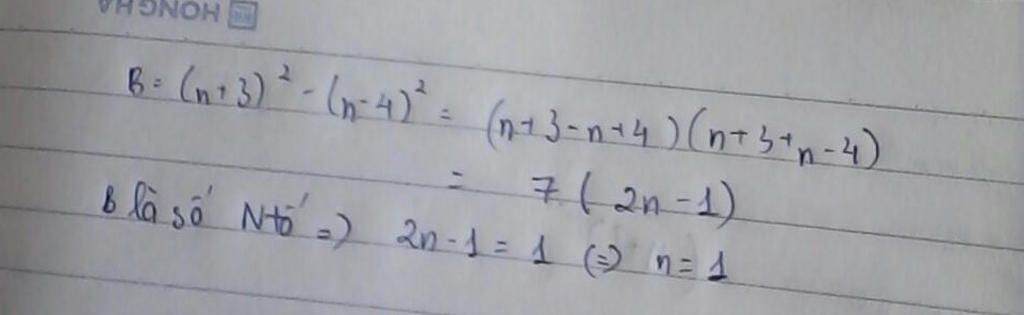 HONG HA
B = (n+3)² - (n-4)² = (n+3-n+4)(n+3+n-4)
= 7(2n-1)
B là số Ntố => 2n-1 = 1 (=) n = 1